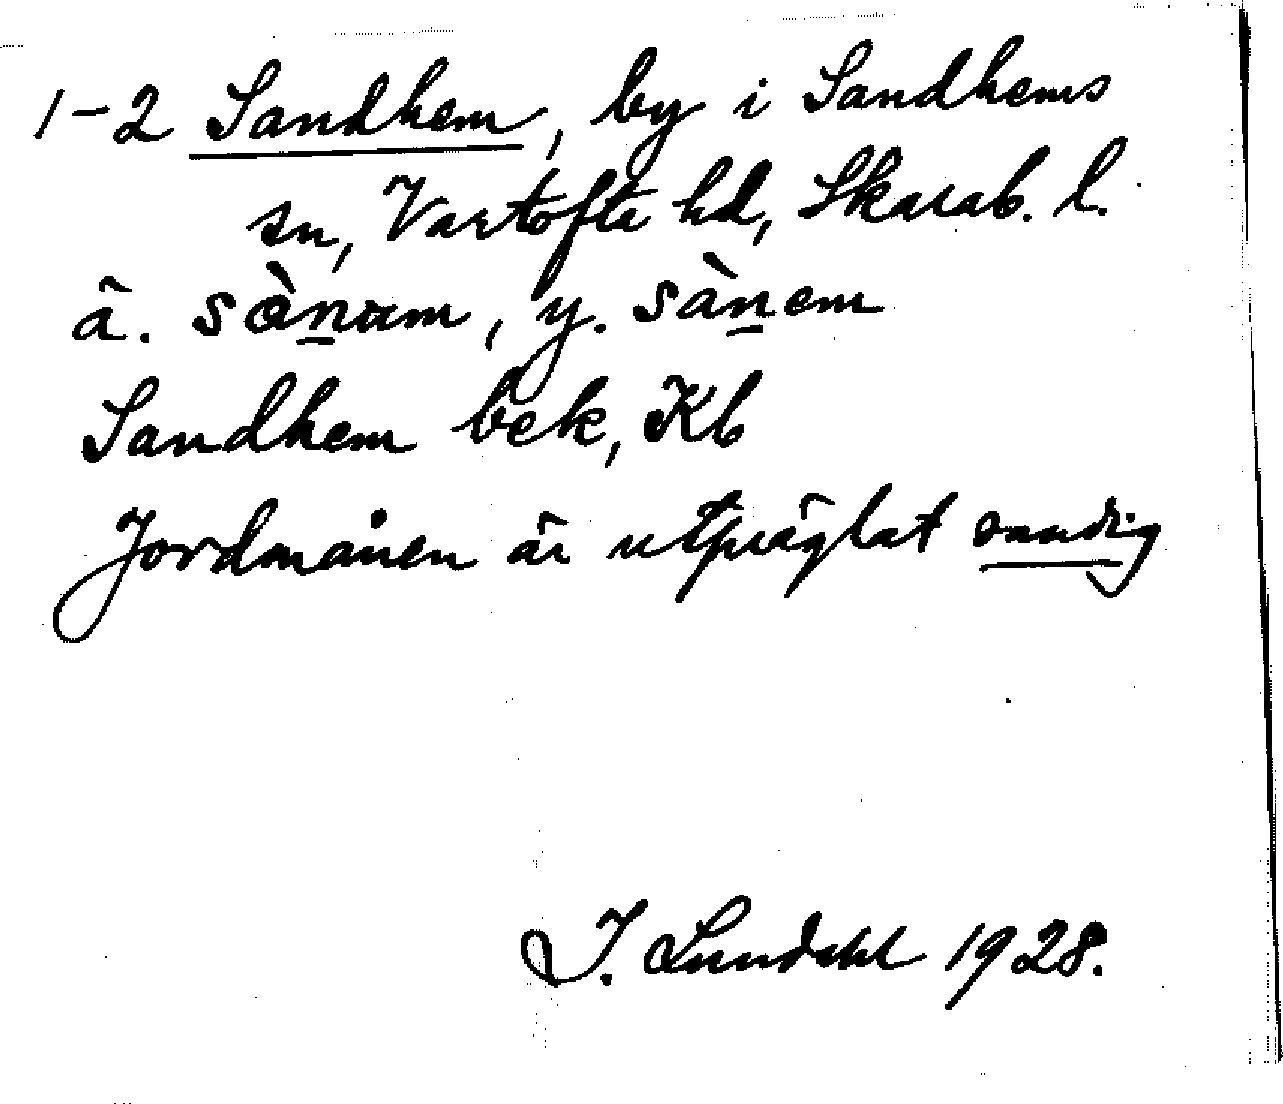 1-2 Sandhem, by i Sandhems
sn, Vartofta hd, Skarab. l.
ä. sàn̲am, y. sàn̲em
Sandhem bek, Kb
Jordmånen är utpräglat sandig
I. Lundahl 1928.